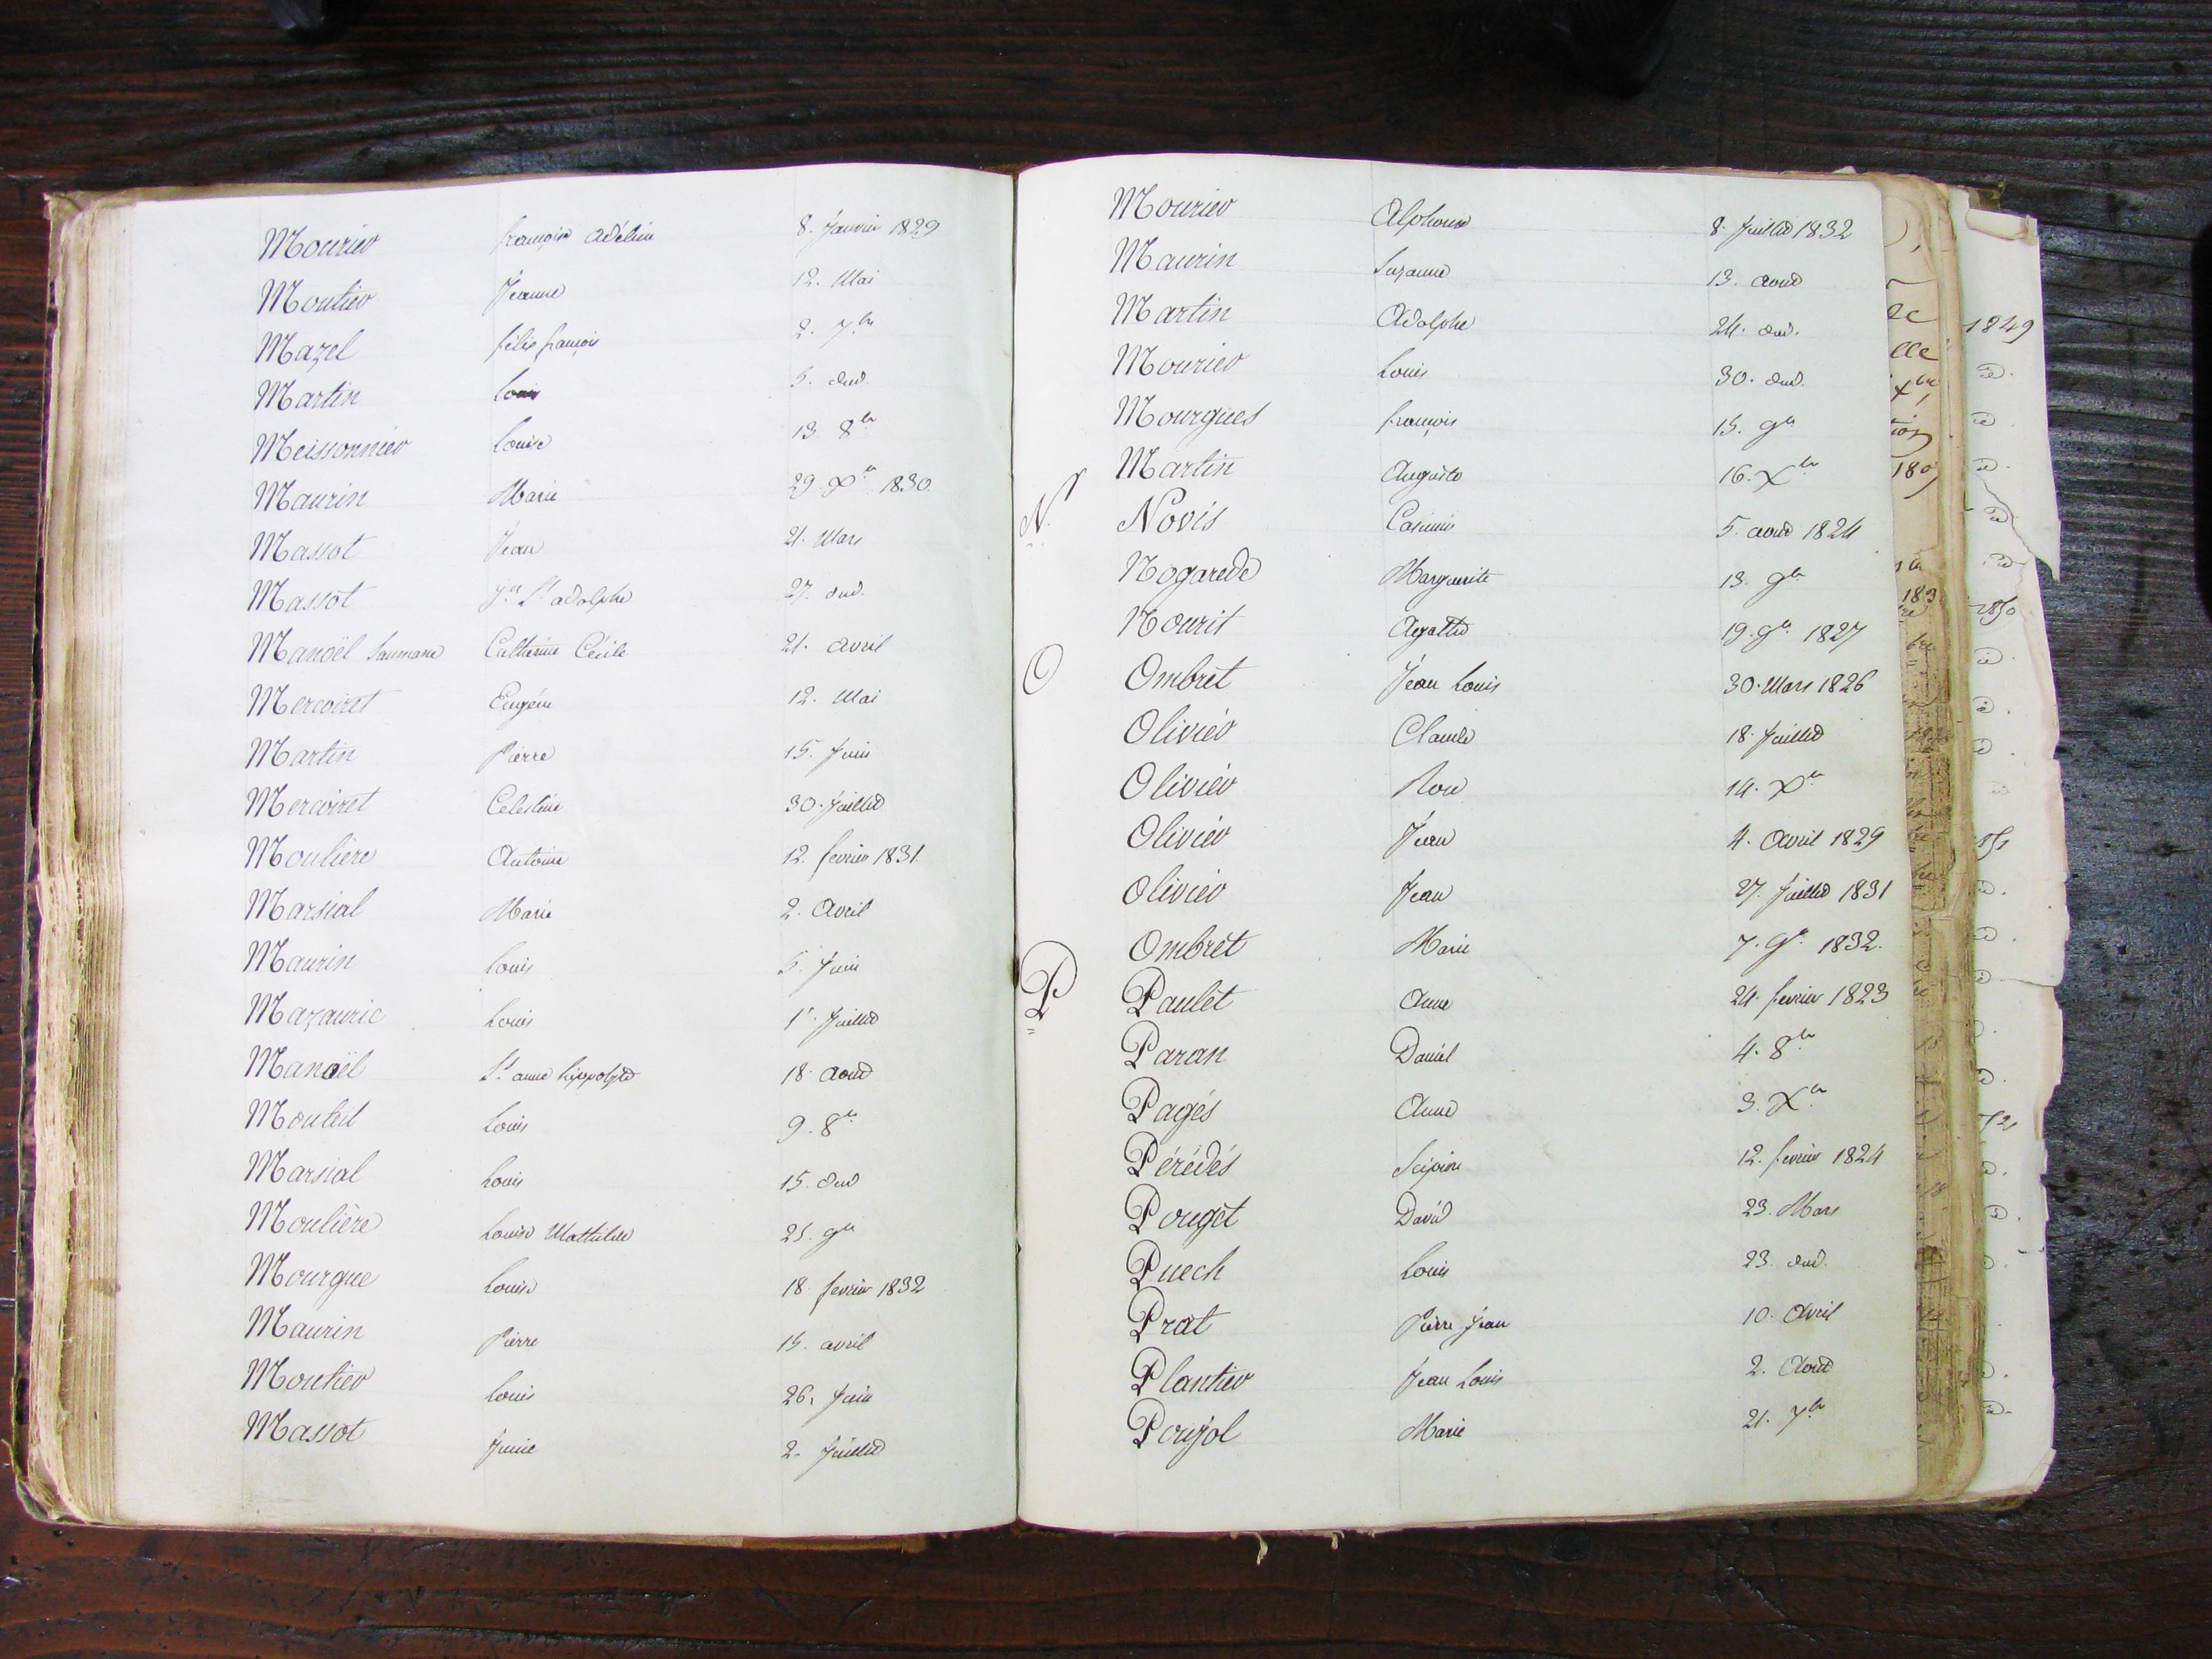 Mourier françoise Adéline 8. Janvier 1829
Moutier Jeanne 12. Mai
Mazel félix françois 2. 7.bre
Martin Louis 5. dud.
Meissonnier Louise 13. 8bre
Maurin Marie 29. Xbre 1830.
Massot Jean 21. Mars
Massot Jn Ls adolphe 27. dud.
Manoël Saumane Catherine Cécile 21. avril
Mercoiret Eugénie 12. Mai
Martin Pierre 15. Juin
Mercoiret Celestine 30. Juillet
Moulière Antoine 12. fevrier 1831.
Marsial Marie 2. Avril
Maurin Louis 5. Juin
Mazauric Louis 1r. Juillet
Manoël Ls anne hippolyte 18. Aout
Monteil Louis 9. 8bre
Marsial Louis 15. dud
Moulière Louise Mathilde 25. 9bre
Mourgue Louise 18 fevrier 1832
Maurin Pierre 15. avril
Moutier Louis 26. Juin
Massot Junie 2. Juillet
Mourier Alphonse 8. Juillet 1832
Maurin Suzanne 13. aout
Martin Adolphe 24. dud.
Mourier Louis 30. dud.
Mourgues françois 15. 9bre
Martin Auguste 16. Xbre
N. Novis Casimir 5. aout 1824
Nogarede Marguerite 13. 9bre
Nourit Agathe 19. 9bre 1827
O Ombret Jean Louis 30. Mars 1826
Olivier Claude 18. Juillet
Olivier Rose 14. Xbre
Olivier Jean 4. Avril 1829
Olivier Jean 27. Juillet 1831
Ombret Marie 7. 9bre 1832.
P Paulet Anne 24. fevrier 1823
Paran Daniel 4. 8bre
Pagés Anne 3. Xbre
Pérédés Scipion 12. fevrier 1824
Pouget David 23. Mars
Puech Louis 23. dud.
Prat Pierre Jean 10. Avril
Plantier Jean Louis 2. Aout
Poujol Marie 21. 7bre
1849